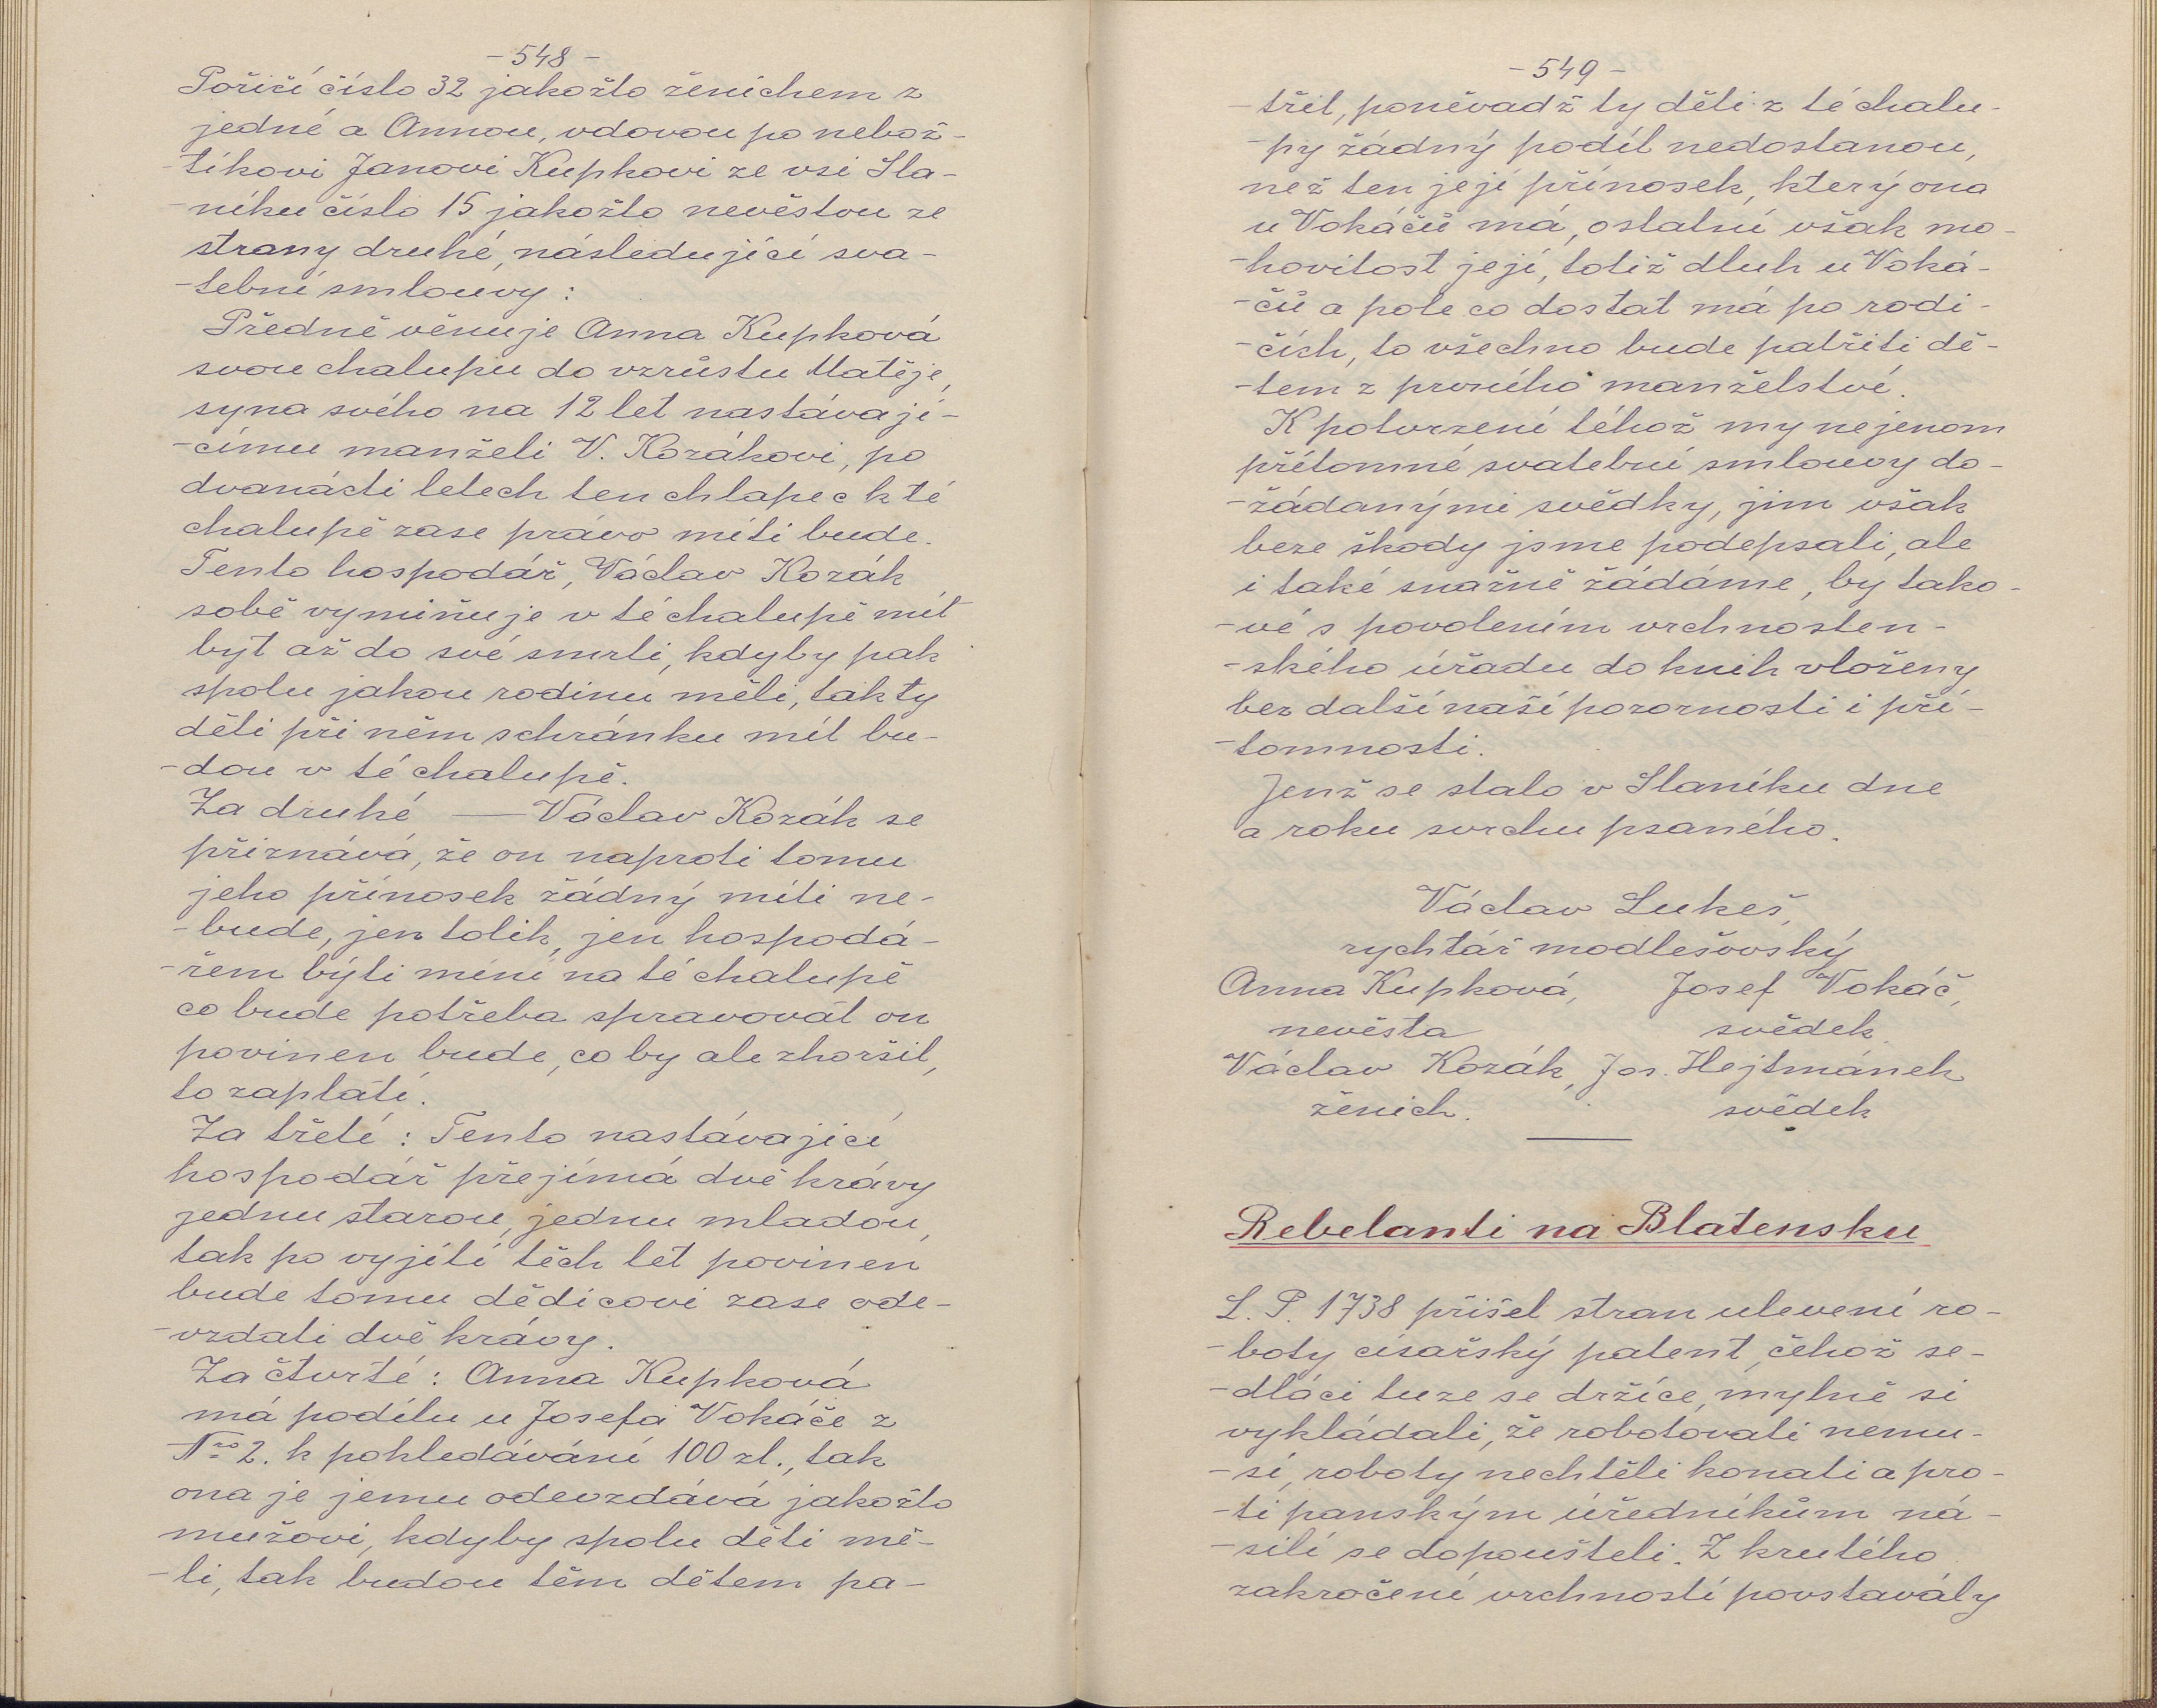 -548-
Pořičí číslo 32 jakožto ženichem z
jedné a Annou, vdovou po nebož-
-tíkovi Janovi Kupkovi ze vsi Sla-
-níku číslo 15 jakožto nevěstou ze
strany druhé, následující sva-
-tební smlouvy:
Předně věnuje Anna Kupková
svou chalupu do vzrůstu Matěje,
syna svého na 12 let nastávají-
-címu manželi V. Kozákovi, po
dvanácti letech ten chlapec k té
chalupě zase právo míti bude.
Tento hospodář, Václav Kozák
sobě vymiňuje v té chalupě mít
byt až do své smrti, kdyby pak
spolu jakou rodinu měli, tak ty
děti při něm schránku mít bu-
-dou v té chalupě.
Za druhé — Václav Kozák se
přiznává, že on naproti tomu
jeho přínosek žádný míti ne-
-bude, jen tolik, jen hospodá-
-řem býti míní na té chalupě
co bude potřeba spravovat on
povinen bude, co by ale zhoršil,
to zaplatí.
Za třetí: Tento nastávající
hospodář přejímá dvě krávy
jednu starou, jednu mladou,
tak po vyjití těch let povinen
bude tomu dědicovi zase ode-
-vzdati dvě krávy.
Za čtvrté: Anna Kupková
má podílu u Josefa Vokáče z
Nro 2. k pohledávání 100 zl., tak
ona je jemu odevzdává jakožto
mužovi, kdyby spolu děti mě-
-li, tak budou těm dětem pa-
-549-
-třit, poněvadž ty děti z té chalu-
-py žádný podíl nedostanou,
než ten její přínosek, který ona
u Vokáčů má, ostatní však mo-
-hovitost její, totiž dluh u Voká-
-čů a pole co dostat má po rodi-
-čích, to všechno bude patřiti dě-
-tem z prvního manželství.
K potvrzení téhož my nejenom
přítomné svatební smlouvy do-
-žádanými svědky, jim však
beze škody jsme podepsali, ale
i také snažně žádáme, by tako-
-vé s povolením vrchnosten-
-ského úřadu do knih vloženy
bez další naší pozornosti i pří-
-tomnosti.
Jenž se stalo v Slaníku dne
a roku svrchu psaného.
Václav Lukeš,
rychtář modlešovský
Anna Kupková, Josef Vokáč,
nevěsta svědek
Václav Kozák, Jos. Hejtmánek
ženich. svědek
Rebelanti na Blatensku
L. P. 1738 přišel stran ulevení ro-
-boty císařský patent, čehož se-
-dláci tuze se držíce, mylně si
vykládali, že robotovati nemu-
-sí, roboty nechtěli konati a pro-
-ti panským úředníkům ná-
-silí se dopouštěli. Z krutého
zakročení vrchností povstavály